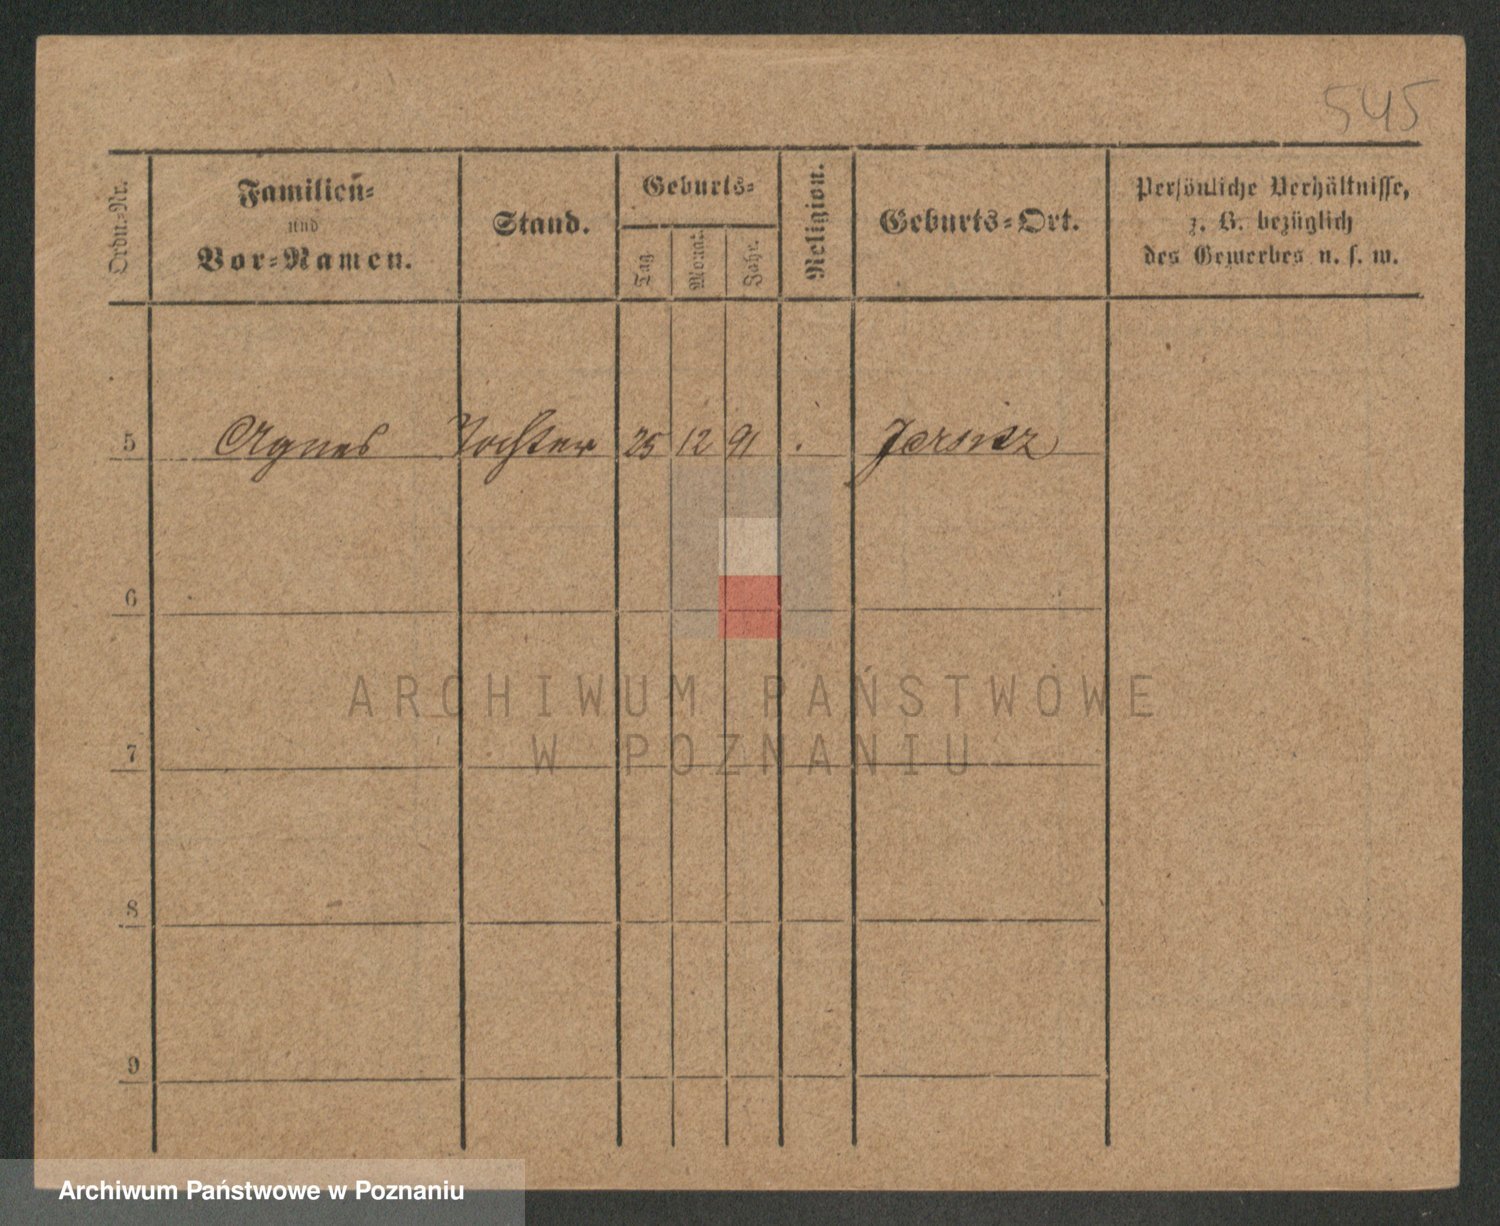 545
Ordn.=Nr.
Familien=
und
Vor=Namen.
Stand.
Geburts=
Tag.
Monat.
Jahr.
Religion.
Geburts=Ort.
Persönliche Verhältnisse,
z. B. bezüglich
des Gewerbes u. s. w.
5 Agnes Tochter 25 12 91 . Jersitz
6
ARCHIWUM PAŃSTWOWE
W POZNANIU
7
8
9
Archiwum Państwowe w Poznaniu